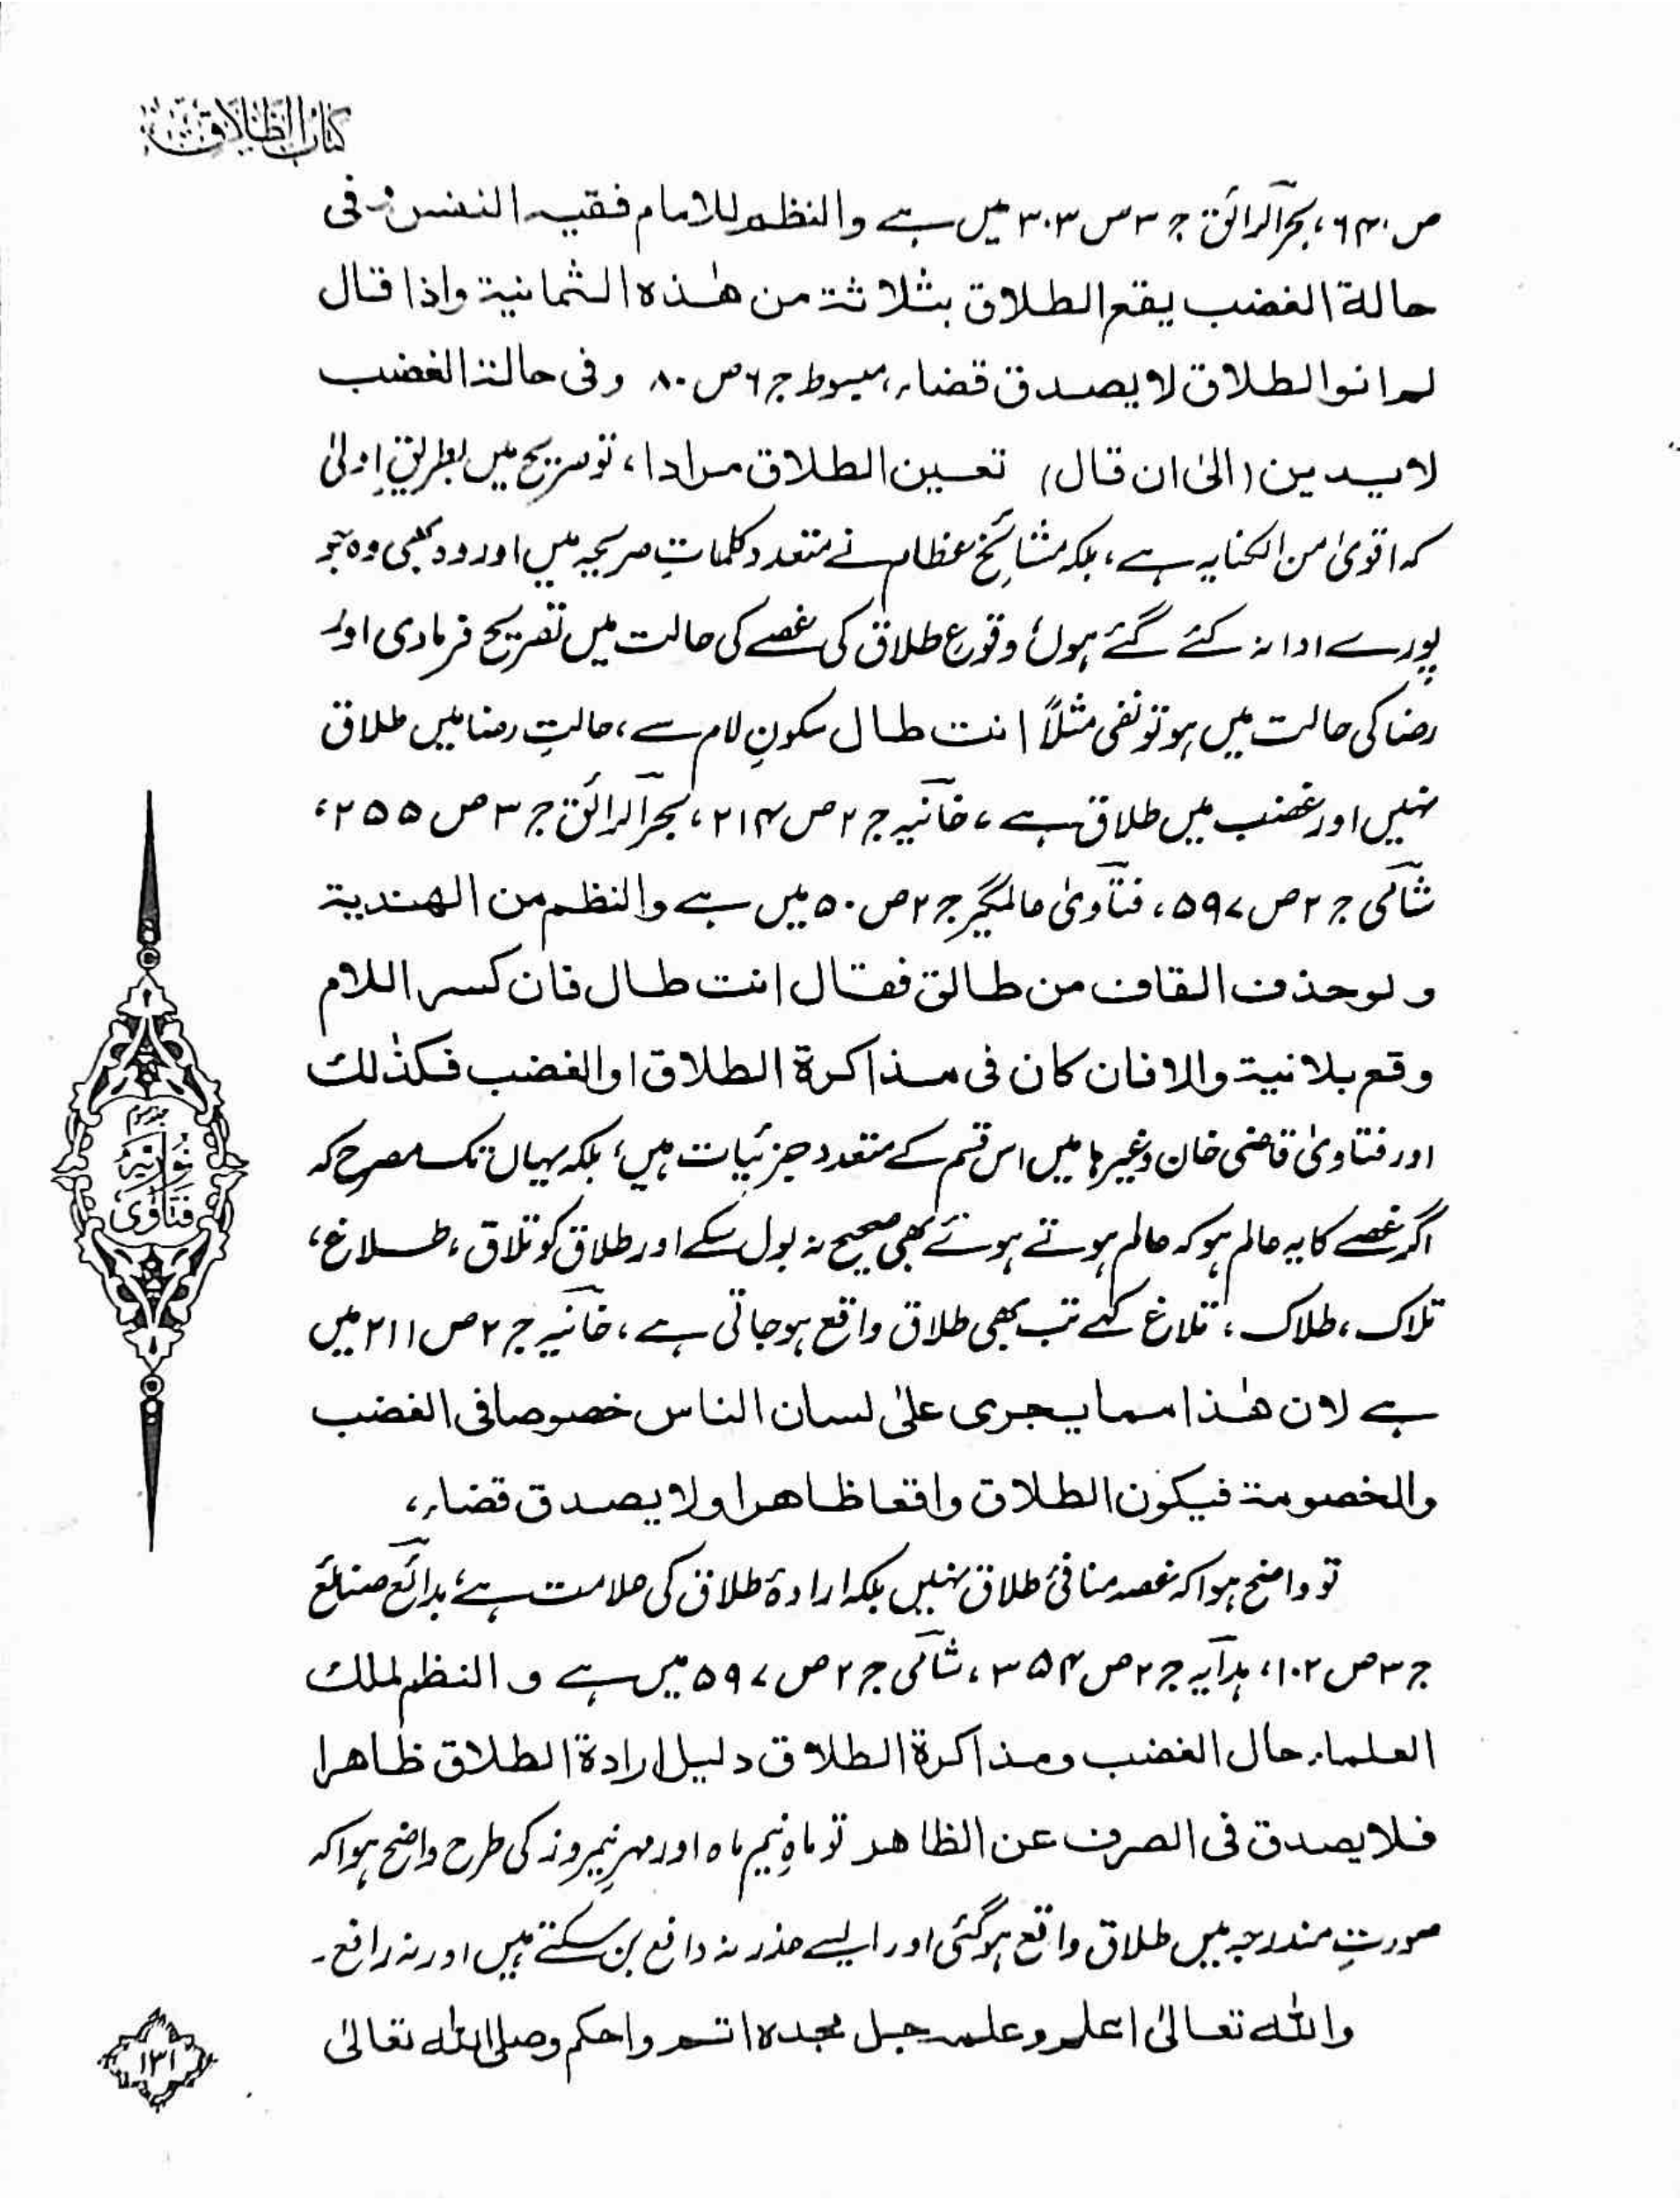 کتاب الطلاق
ص ۶۴۰، بحر الرائق ج ۳ ص ۳۰۳ میں ہے والنظم للامام فقیہ النفس وفی
حالة الغضب یقع الطلاق بثلاثة من هٰذه الثمانیة واذا قال
لم انو الطلاق لا یصدق قضاء، مبسوط ج ۶ ص ۸۰ وفی حالة الغضب
لا یدین (الیٰ ان قال) تعین الطلاق مرادا، تو صریح میں بطریقِ اولیٰ
کہ اقویٰ من الکنایہ ہے، بلکہ مشائخِ عظام نے متعدد کلماتِ صریحہ میں اور وہ بھی وہ جو
پورے ادا نہ کئے گئے ہوں، وقوعِ طلاق کی غصے کی حالت میں تصریح فرما دی اور
رضا کی حالت میں ہو تو نفی مثلاً انت طال سکونِ لام سے، حالتِ رضا میں طلاق
نہیں اور غضب میں طلاق ہے، خانیہ ج ۲ ص ۲۱۴، بحر الرائق ج ۳ ص ۲۵۵،
شامی ج ۲ ص ۵۹۷، فتاویٰ عالمگیر ج ۲ ص ۵۰ میں ہے والنظم من الهندیة
ولو حذف القاف من طالق فقال انت طال فان کسر اللام
وقع بلا نیة والا فان کان فی مذاکرة الطلاق او الغضب فکذٰلك
اور فتاویٰ قاضی خان وغیرہا میں اس قسم کے متعدد جزئیات ہیں، بلکہ یہاں تک مصرح کہ
اگر غصے کا یہ عالم ہو کہ عالم ہوتے ہوئے بھی صحیح نہ بول سکے اور طلاق کو تلاق، طلاغ،
تلاک، طلاک، تلاغ کہے تب بھی طلاق واقع ہو جاتی ہے، خانیہ ج ۲ ص ۲۱۱ میں
ہے لان هٰذا مما یجری علیٰ لسان الناس خصوصا فی الغضب
والخصومة فیکون الطلاق واقعا ظاهرا ولا یصدق قضاء،
تو واضح ہوا کہ غصہ منافئ طلاق نہیں بلکہ ارادۂ طلاق کی علامت ہے، بدائع صنائع
ج ۳ ص ۱۰۲، ہدایہ ج ۲ ص ۳۵۴، شامی ج ۲ ص ۵۹۷ میں ہے والنظم لملك
العلماء حال الغضب ومذاکرة الطلاق دلیل ارادة الطلاق ظاهرا
فلا یصدق فی الصرف عن الظاهر تو ماہِ نیم ماہ اور مہرِ نیمروز کی طرح واضح ہوا کہ
صورتِ مندرجہ میں طلاق واقع ہو گئی اور ایسے عذر نہ دافع بن سکتے ہیں اور نہ رافع۔
واللّٰه تعالیٰ اعلم وعلمه جل مجده اتم واحکم وصلی اللّٰه تعالیٰ
جلد سوم
فتاویٰ نوریہ
۱۳۱